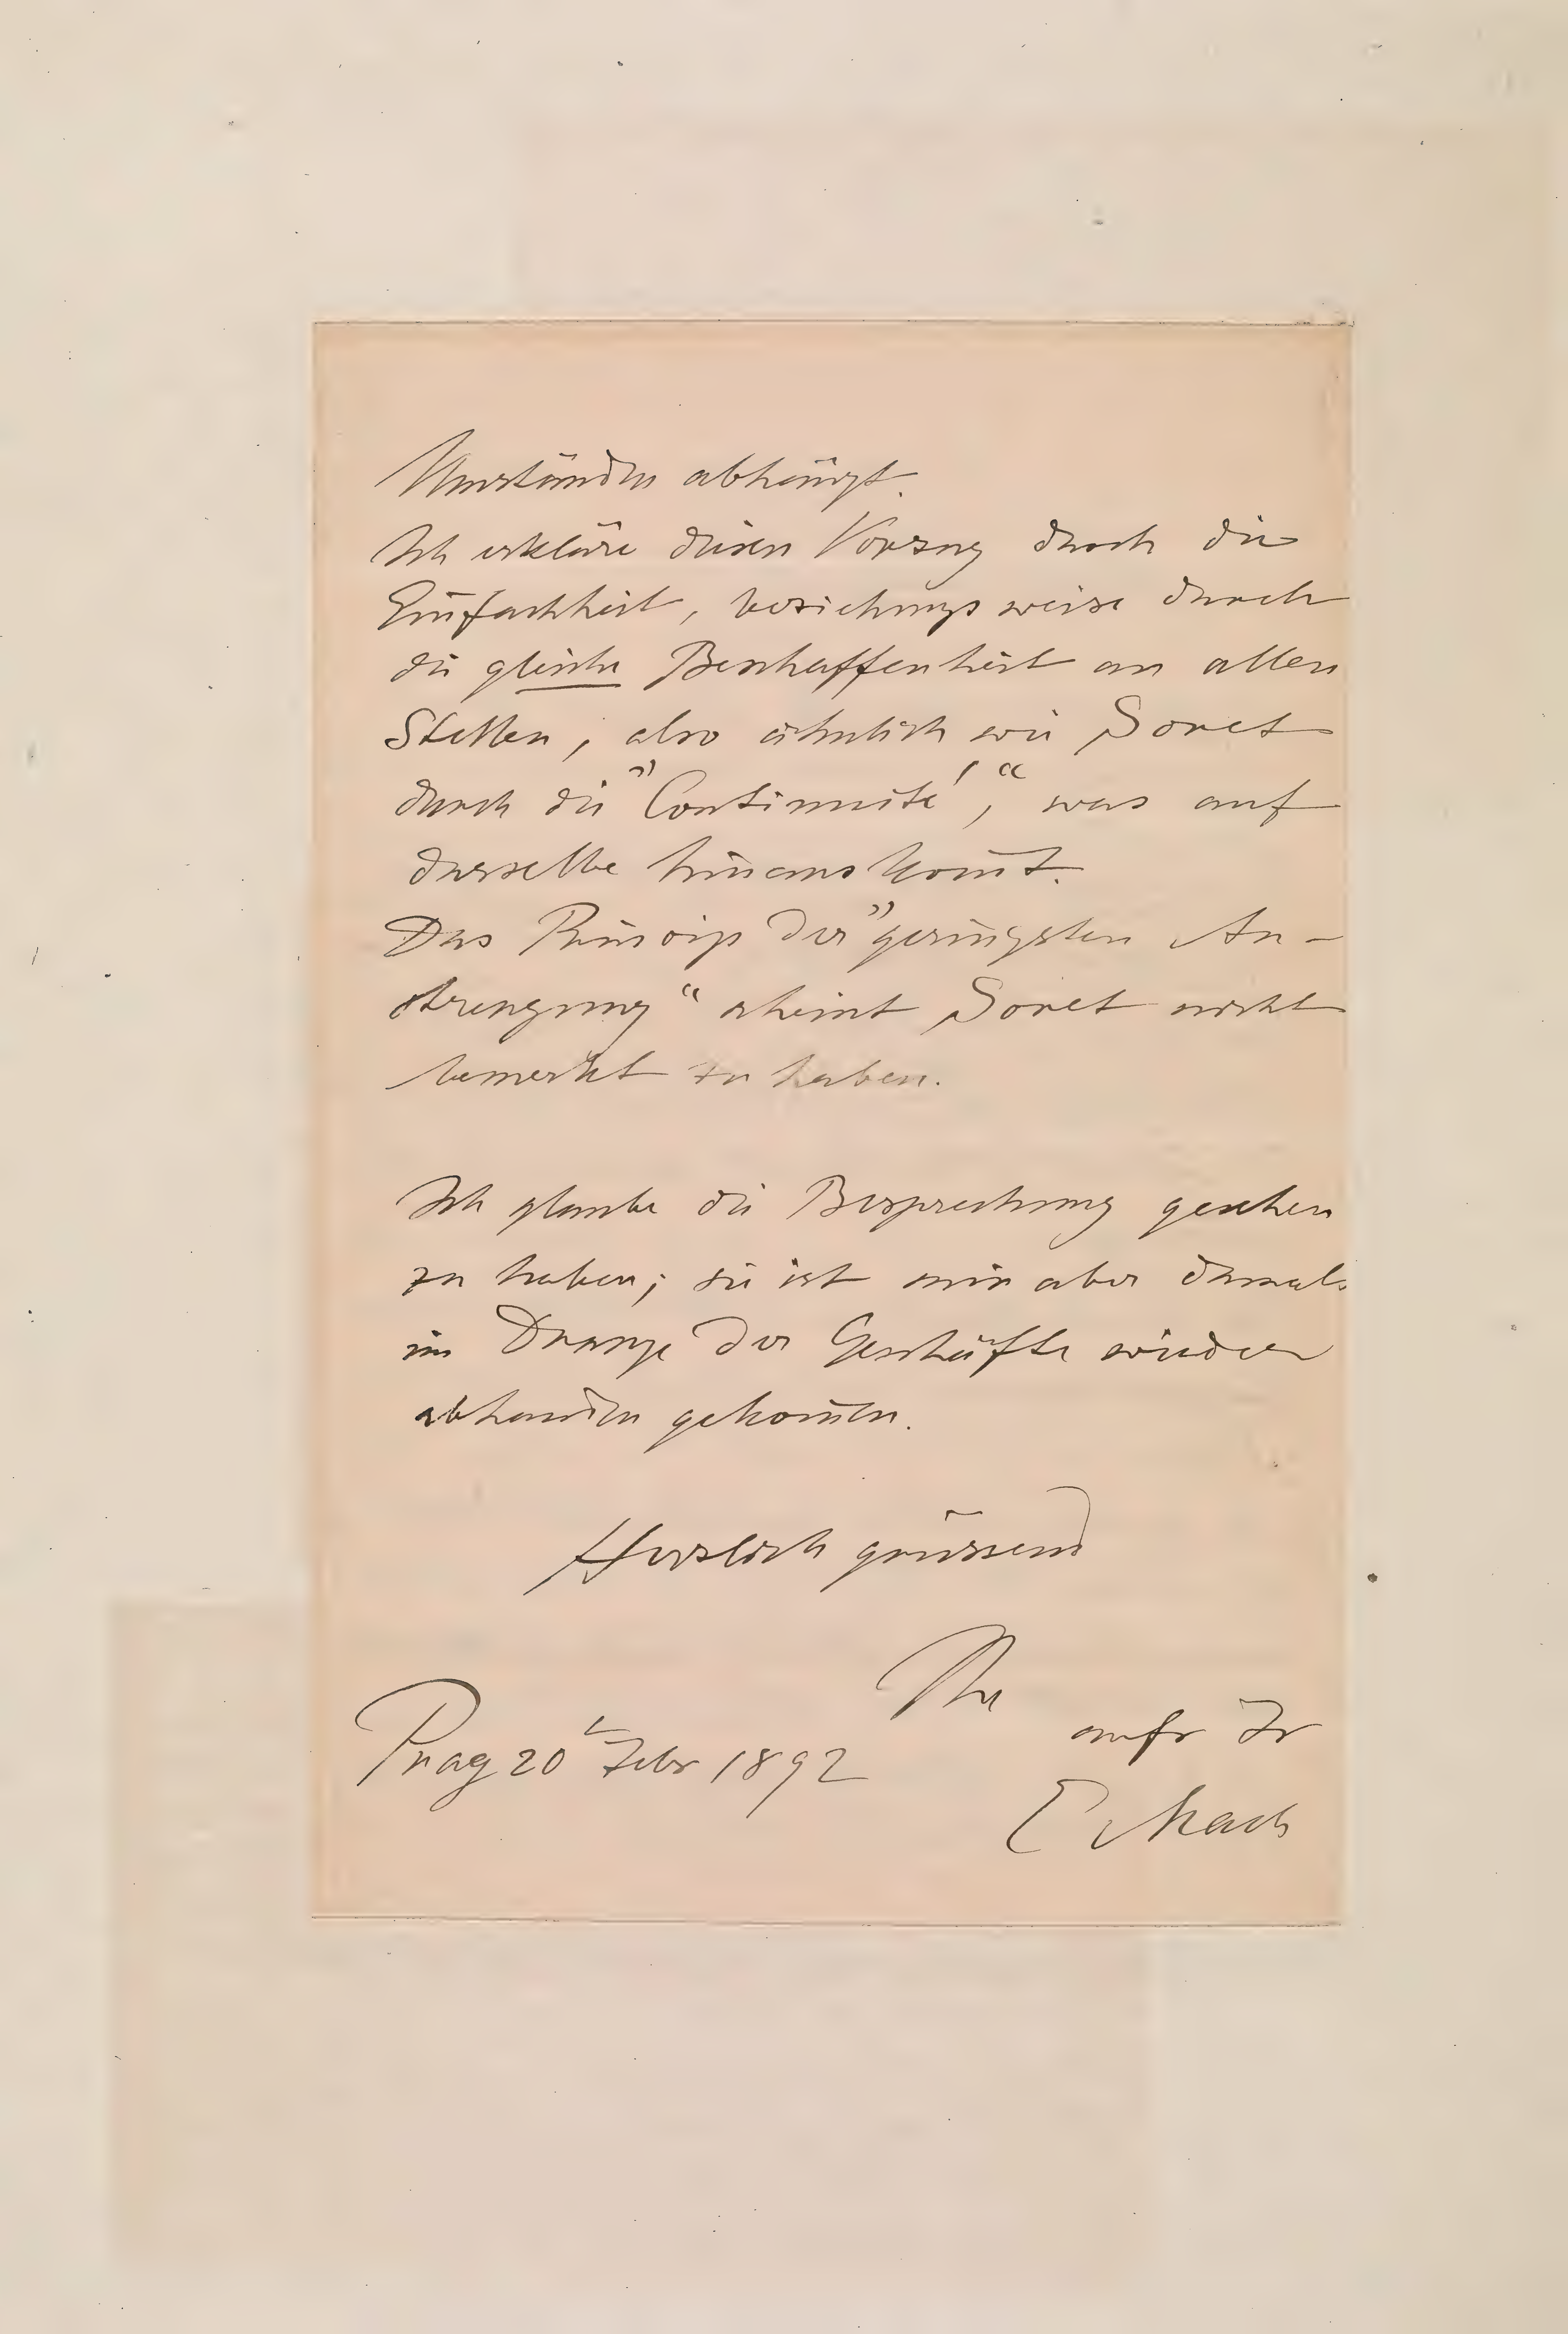 Umständen abhängt.
Ich erkläre diesen Vorzug durch die
Einfachheit, beziehungsweise durch
die gleiche Beschaffenheit an allen
Stellen, also ähnlich wie Soret
durch die "Continuité", was auf
dasselbe hinauskom̅t.
Das Princip der "geringsten An-
strengung" scheint Soret nicht
bemerkt zu haben.
Ich glaube die Besprechung gesehen
zu haben; sie ist mir aber damals
im Drange der Geschäfte wieder
abhanden gekom̅en.
Herzlich grüssend
Ihr
aufr Fr
Prag 20t Febr 1892
E Mach